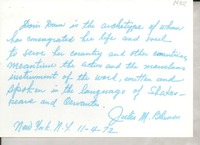 is the archetype of
has consagrated her life and soul
to serve her country and other countries,
meantime the actor and the marvelous
instrument of the word, written and
spoken in the language of Shakes-
peare and Cervantes.
Julio M.
New York N.Y. 11-4-72